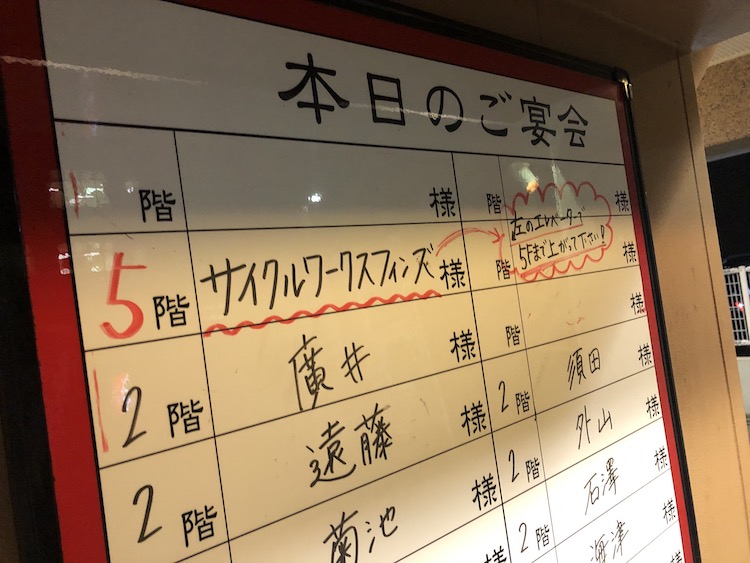 本日のご宴会
階 様 階 様
左のエレベーターで
5Fまで上がって下さい!
5階 サイクルワークスフィンズ様 階 様
2階 廣井様 階 様
2階 遠藤様 2階 須田様
菊池様 2階 外山様
2 石澤様
海津